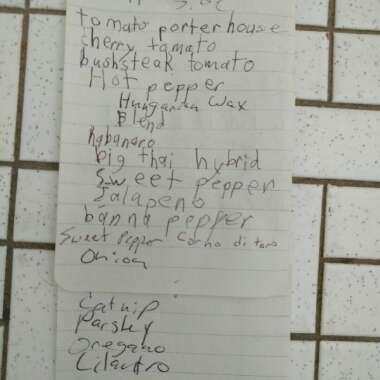 tomato porterhouse
cherry tamato
bushsteak tomato
Hot pepper
Hungarian Wax
Blend
habanero
big thai hybrid
Sweet pepper
Jalapeno
banna pepper
Sweet Pepper Corno di toro
Onion
Catnip
Parsley
Oregano
Cilantro